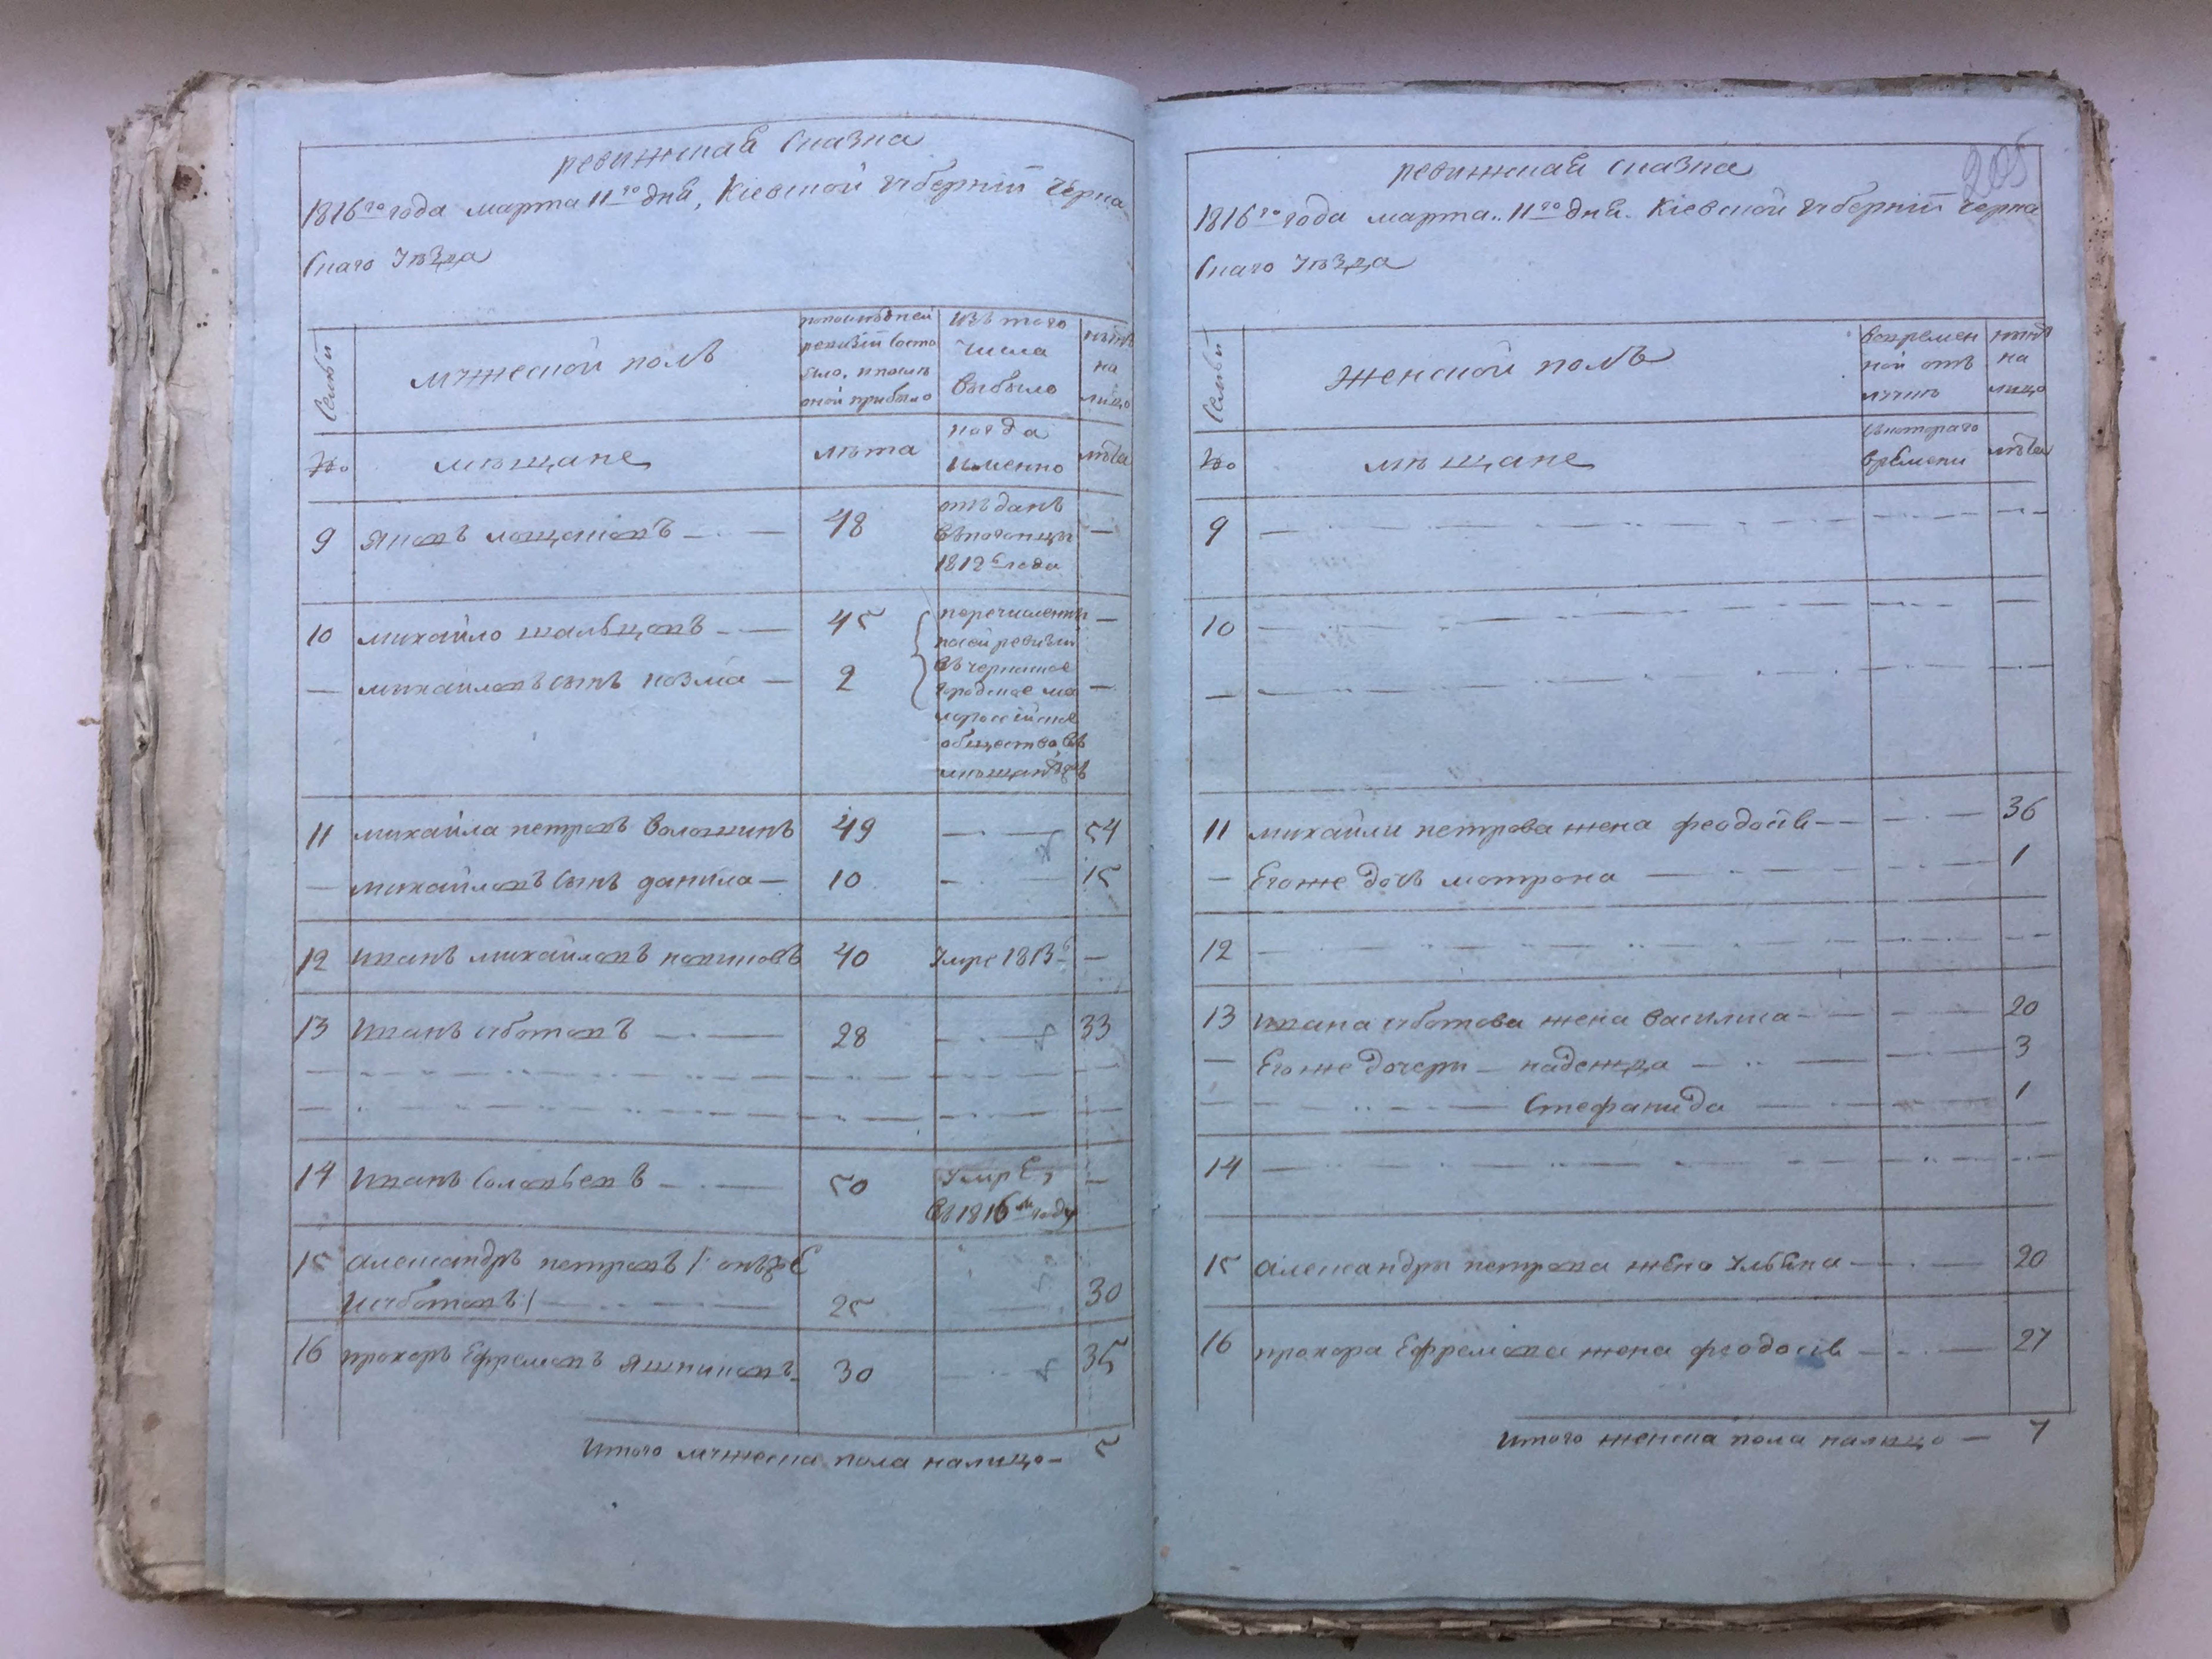 ревижская сказка
1816го года марта 11го дня, Кіевской губерніи Черка
скаго уѣзда
Семьи
мужеской полъ
попослѣдней
ревизіи состо
яло, и послѣ
оной прибыло
изъ того
числа
выбыло
нынѣ
на
лицо
№
мѣщане
лѣта
когда
именно
лѣта
9 Яковъ 48 —
отъданъ
1812го года
10 михайло 45 —
— михайловъ сынъ козма — 2 —
перечисленъ
посей ревизіи
въ черкаское
городское ма
лоросейское
общество въ
11 михайла петровъ волошинъ 49 — 54
— михайловъ сынъ данила — 10 — 15
12 иванъ михайловъ 40 умре 1813 —
13 иванъ суботовъ — 28 — 33
14 иванъ соловьевъ — 50 умре, —
въ 1816м году
15 александръ петровъ /: онъже
исуботовъ / — 25 — 30
16 прохоръ Ефремовъ 30 — 35
итого мужеска пола налицо — 5
205
ревижская сказка
1816го года марта 11го дня. Кіевской губерніи черка
скаго уѣзда
Семьи
женской полъ
вовремен
ной отъ
лучкѣ
нынѣ
на
лицо
№
мѣщане
съкотораго
времени
лѣта
9 —
10 —
11 михайли петрова жена феодосія — 36
— Егоже дочь мотрона — 1
12 —
13 ивана суботова жена василиса — 20
— Егоже дочери — надежда — 3
— Стефанида — 1
14 —
15 александра петрова жена ульяна — 20
16 прохора Ефремова жена феодосія — 27
итого женска пола налицо — 7